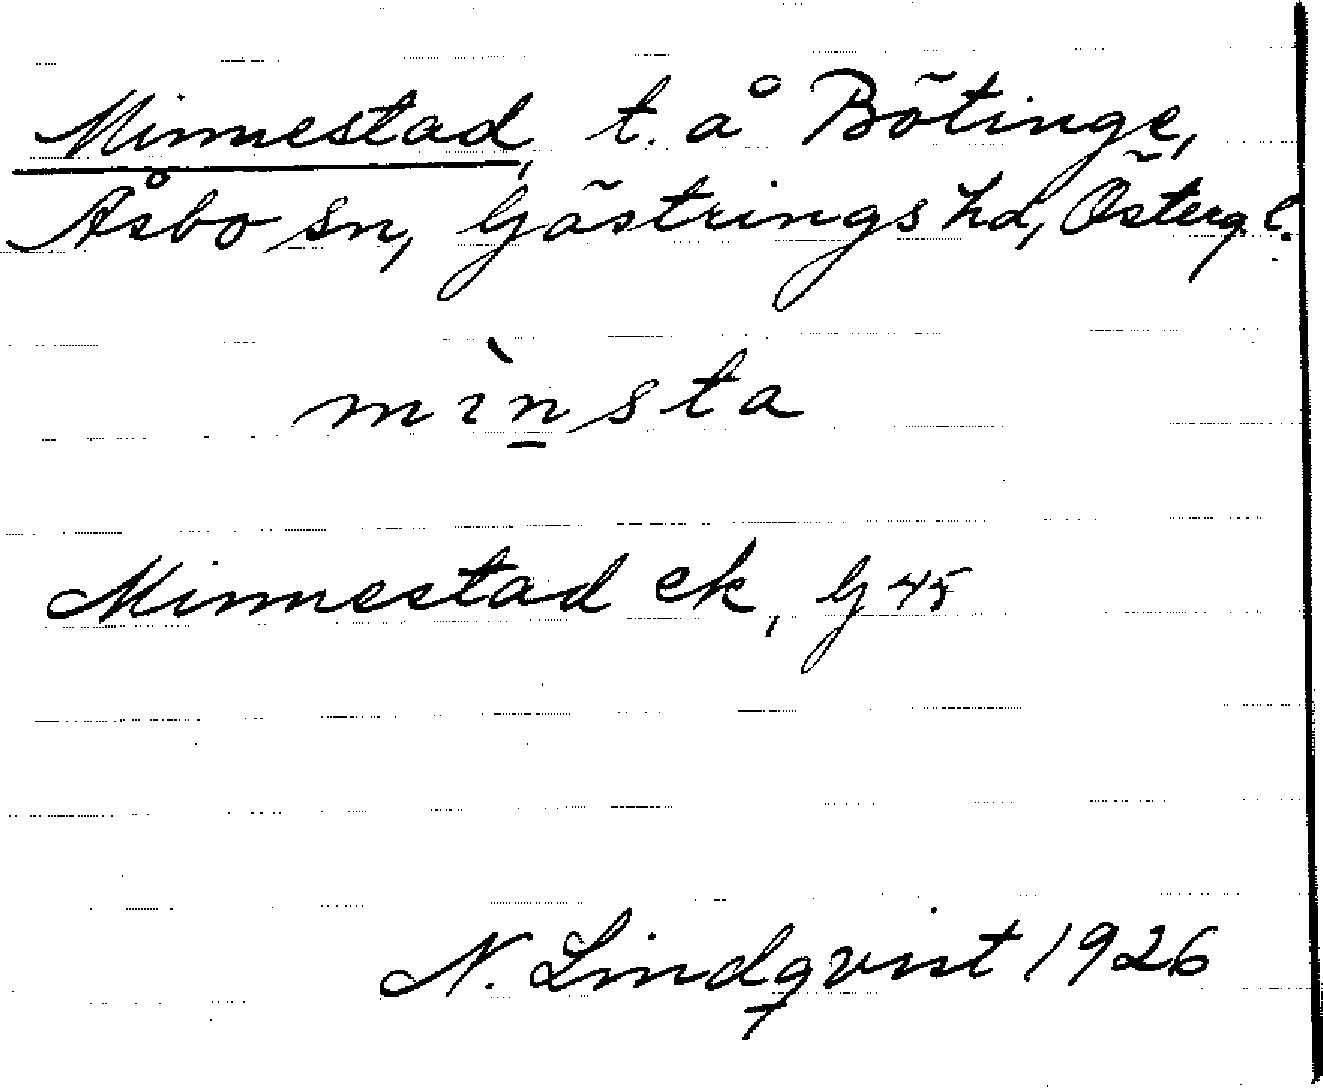 Minnestad, t. å Bötinge,
Åsbo sn, Gästrings hd, Österg. l.
mìn̲sta
Minnestad ek, G 45
N. Lindqvist 1926